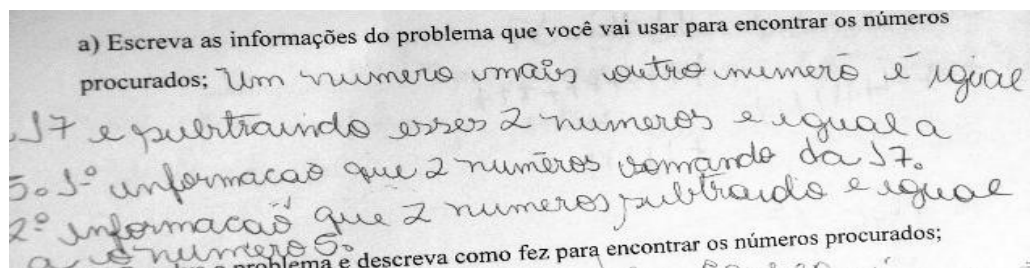 a) Escreva as informações do problema que você vai usar para encontrar os números
procurados; Um numero mais outro numero é igual
17 e subtraindo esses 2 numeros e igual a
5. 1º informacao que 2 numeros somando da 17.
2º informacao que 2 numeros subtraido e igual
a o numero 5.
problema e descreva como fez para encontrar os números procurados;